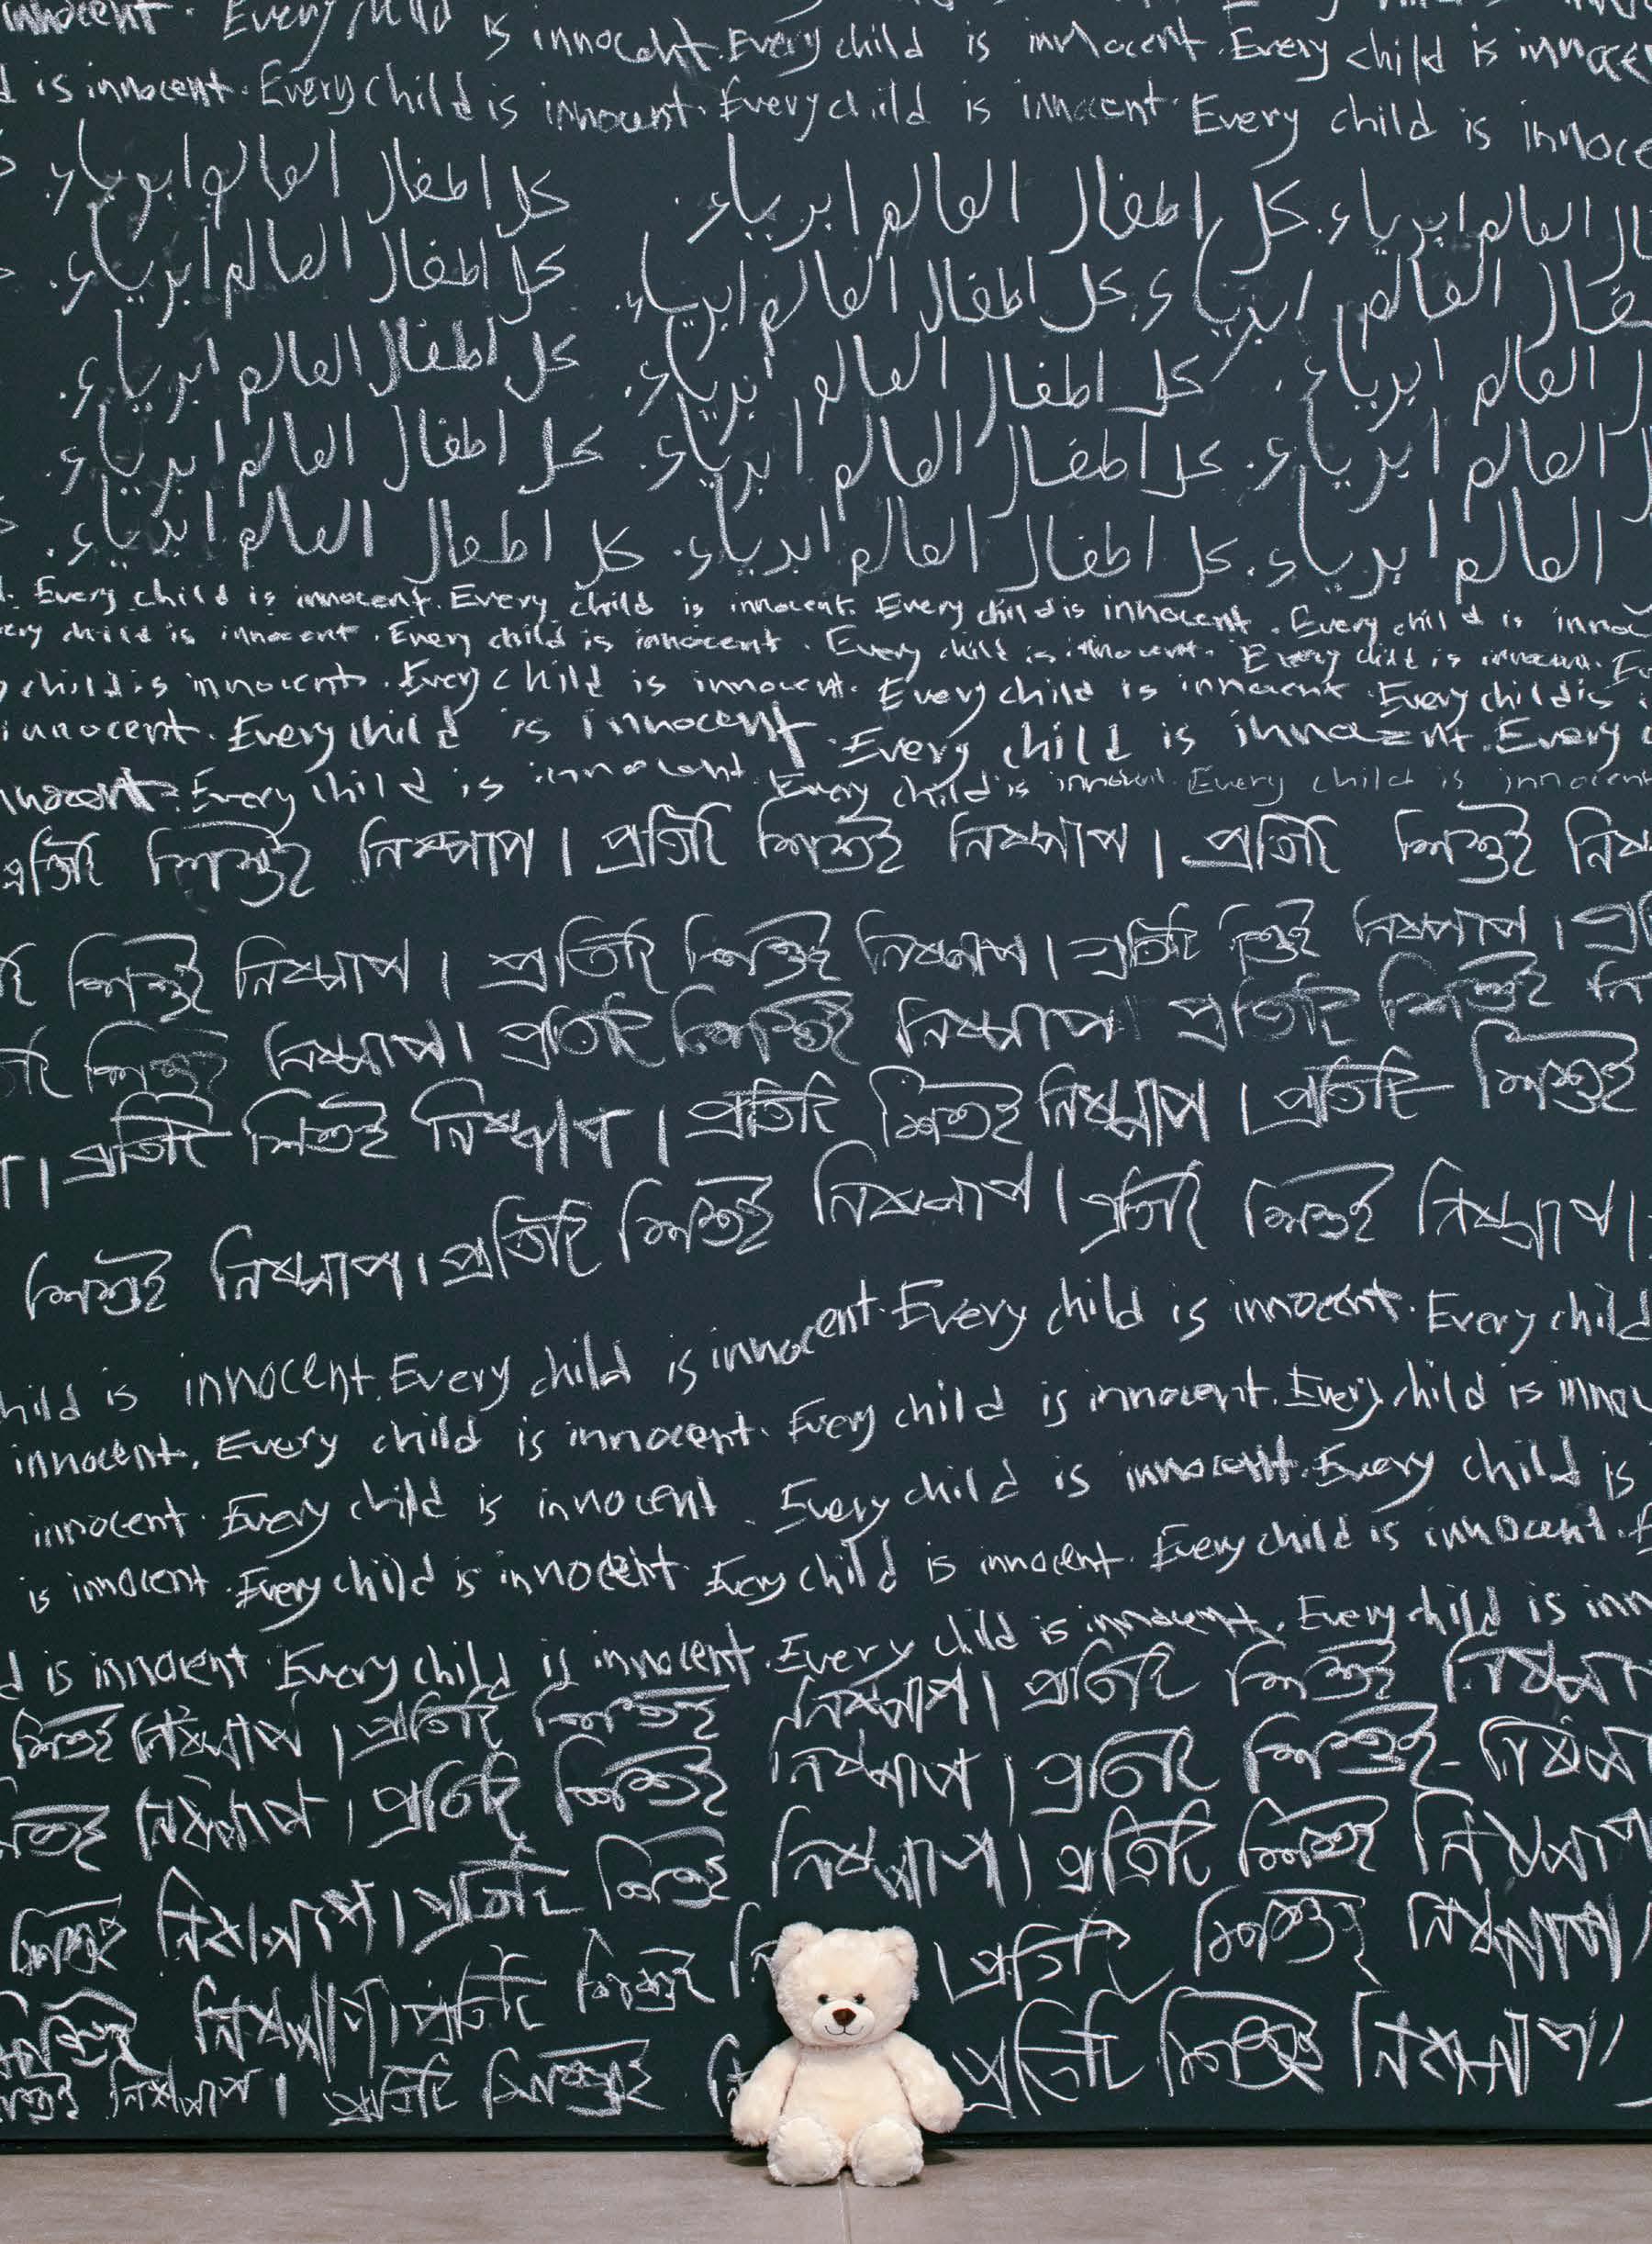 innocent. Every child is innocent. Every child is innocent. Every child is innocen
d is innocent. Every child is innocent. Every child is innocent. Every child is innoce
ال العالم ابرياء. كل اطفال العالم ابرياء. كل اطفال العالم ابرياء.
فال العالم ابرياء. كل اطفال العالم ابرياء. كل اطفال العالم ابرياء.
العالم ابرياء. كل اطفال العالم ابرياء. كل اطفال العالم ابرياء.
العالم ابرياء. كل اطفال العالم ابرياء. كل اطفال العالم ابرياء.
العالم ابرياء. كل اطفال العالم ابرياء. كل اطفال العالم ابرياء.
. Every child is innocent. Every child is innocent. Every child is innocent. Every child is inno
ery child is innocent. Every child is innocent. Every child is innocent. Every child is innocent. Ev
y child is innocent. Every child is innocent. Every child is innocent. Every child is
innocent. Every child is innocent. Every child is innocent. Every
innocent. Every child is innocent. Every child is innocent. Every child is innocent
প্রতিটি শিশুই নিষ্পাপ। প্রতিটি শিশুই নিষ্পাপ। প্রতিটি শিশুই নিষ
টি শিশুই নিষ্পাপ। প্রতিটি শিশুই নিষ্পাপ। প্রতিটি শিশুই নিষ্পাপ। প্র
টি শিশুই নিষ্পাপ। প্রতিটি শিশুই নিষ্পাপ। প্রতিটি শিশুই নি
প। প্রতিটি শিশুই নিষ্পাপ। প্রতিটি শিশুই নিষ্পাপ। প্রতিটি শিশুই
শিশুই নিষ্পাপ। প্রতিটি শিশুই নিষ্পাপ। প্রতিটি শিশুই নিষ্পাপ।
hild is innocent. Every child is innocent. Every child is innocent. Every child
innocent. Every child is innocent. Every child is innocent. Every child is inno
innocent. Every child is innocent. Every child is innocent. Every child is
is innocent. Every child is innocent. Every child is innocent. Every child is innocent. E
d is innocent. Every child is innocent. Every child is innocent. Every child is inn
শিশুই নিষ্পাপ। প্রতিটি শিশুই নিষ্পাপ। প্রতিটি শিশুই নিষ্পাপ
শুই নিষ্পাপ। প্রতিটি শিশুই নিষ্পাপ। প্রতিটি শিশুই নিষ্প
শিশুই নিষ্পাপ। প্রতিটি শিশুই নিষ্পাপ। প্রতিটি শিশুই নিষ্পাপ
শিশুই নিষ্পাপ। প্রতিটি শিশুই নি । প্রতিটি শিশুই নিষ্পাপ।
শুই নিষ্পাপ। প্রতিটি শিশুই নি প্রতিটি শিশুই নিষ্পাপ।